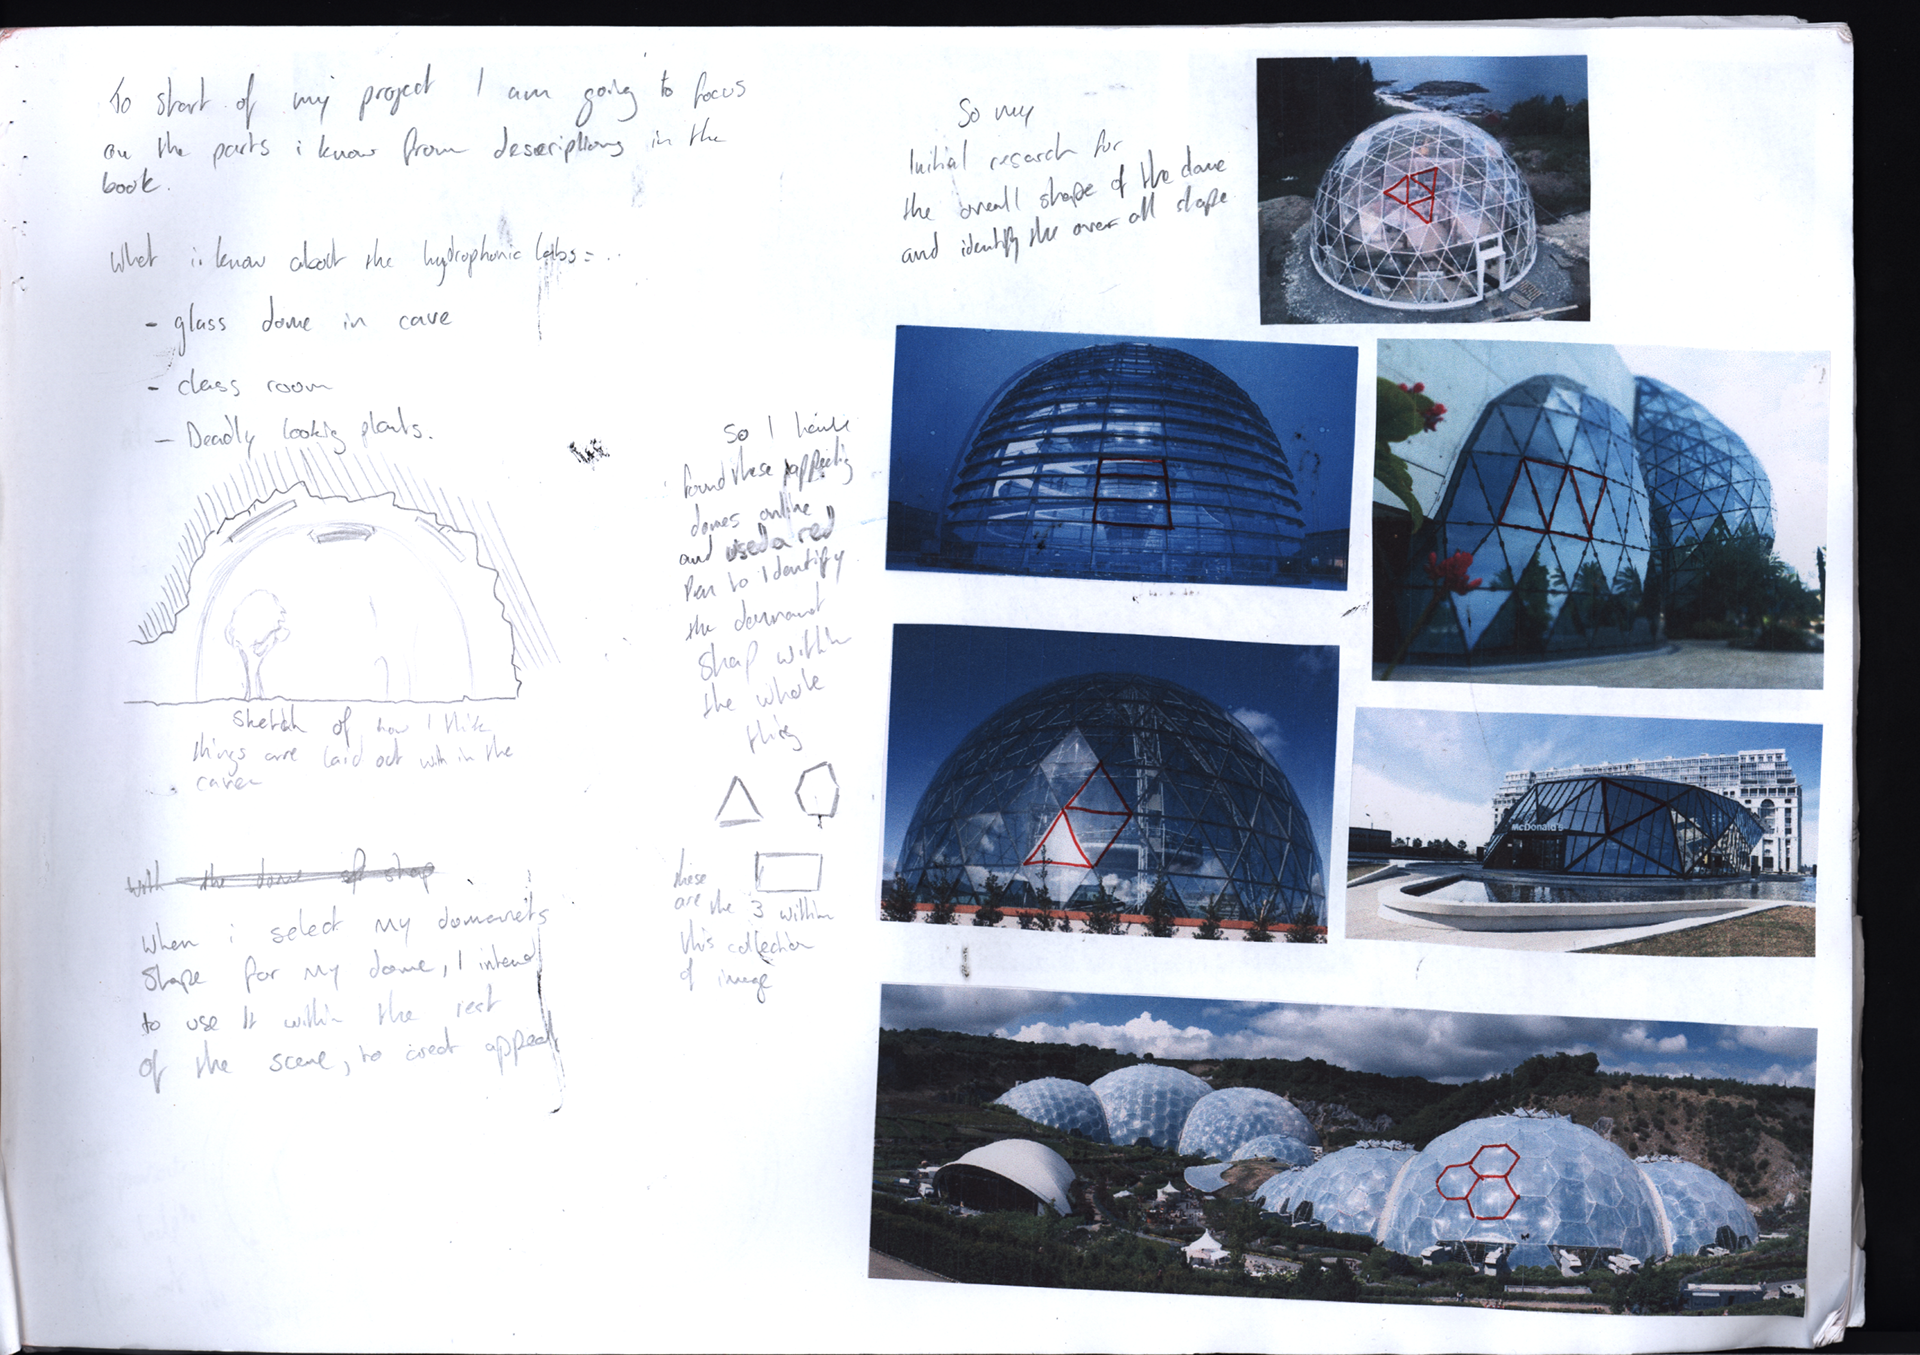 To start of my project I am going to focus
on the parts i know from descriptions in the
book.
What i know about the hydrophonic labs = ...
- glass dome in cave
- class room
- Deadly looking plants.
sketch of how I think
things are laid out with in the
caven
with the dome of shap
When i select my domanets
shape for my dome, I intend
to use it within the rest
of the scene, to creat appeal
So I have
found these appeling
domes online
and used a red
Pen to identify
the domanet
shap within
the whole
thing
these
are the 3 within
this collection
of image
So my
Initial research for
the overall shape of the dome
and identify the over all shape
McDonald's